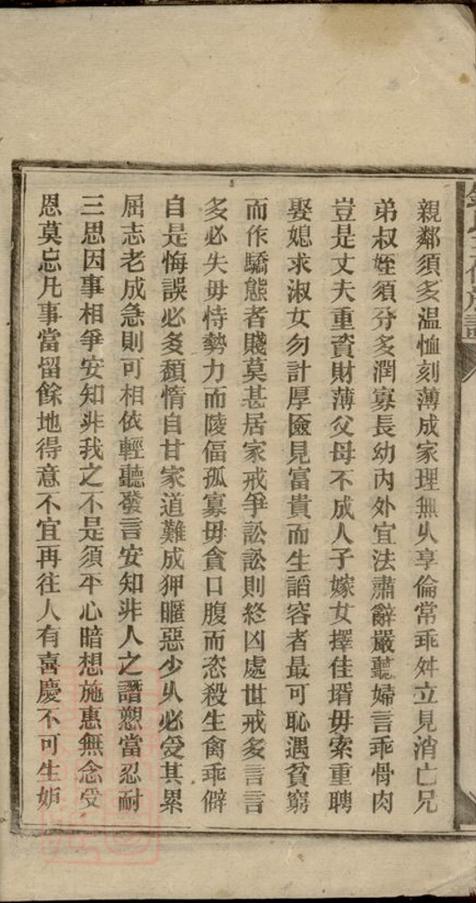 親鄰須多温恤刻薄成家理無乆享倫常乖舛立見消亡兄
弟叔姪須分多潤寡長幼內外宜法肅辭嚴聽婦言乖骨肉
豈是丈夫重資財薄父母不成人子嫁女擇佳壻毋索重聘
娶媳求淑女勿計厚奩見富貴而生謟容者最可恥遇貧窮
而作驕態者賤莫甚居家戒爭訟訟則終凶處世戒多言言
多必失毋恃勢力而陵偪孤寡毋貪口腹而恣殺生禽乖僻
自是悔誤必多頹惰自甘家道難成狎暱惡少乆必受其累
屈志老成急則可相依輕聽發言安知非人之譖愬當忍耐
三思因事相爭安知非我之不是須平心暗想施惠無念受
恩莫忘凡事當留餘地得意不宜再往人有喜慶不可生妒